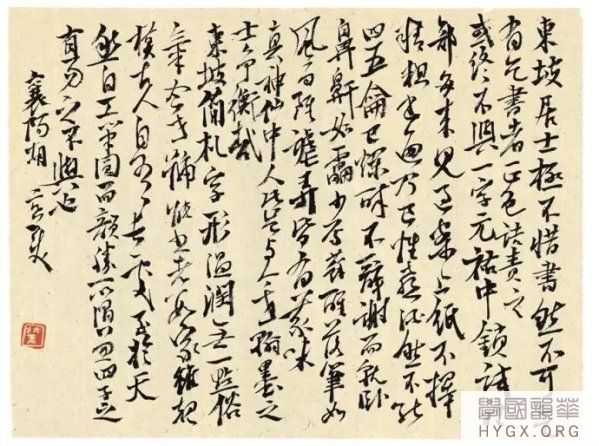 東坡居士極不惜書然不可
有乞書者正色詰責之
或終不與一字元祐中鎖試
部每來見過案上紙不擇
精粗書遍乃已性喜酒然不能
四五龠已爛醉不辭謝而就臥
鼻鼾如雷少焉蘇醒落筆如
風雨雖謔弄皆有義味
真神仙中人此豈與今世翰墨之
士爭衡哉
東坡簡札字形溫潤無一點俗
氣今世號能書者數家雖規
摸古人自有長處至於天
然自工筆圓而韻勝所謂兼四子之
有以易之不與也
襄陽
學國韻華
HYGX.ORG